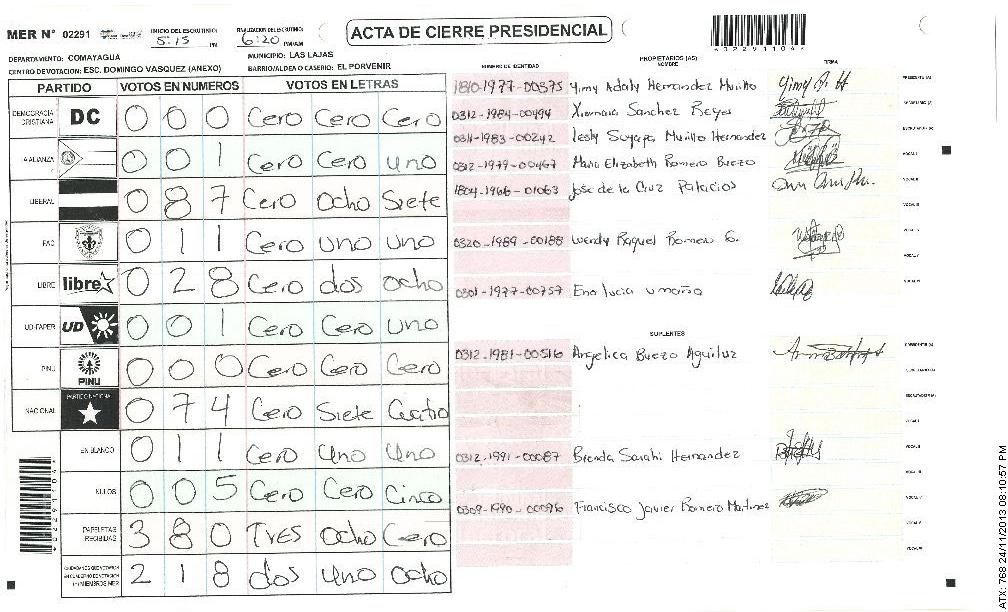 MER N° 02291
INICIO DEL ESCRUTINIO: 5:15 PM
FINALIZACION DEL ESCRUTINIO: 6:20 PM/AM
ACTA DE CIERRE PRESIDENCIAL
DEPARTAMENTO: COMAYAGUA
MUNICIPIO: LAS LAJAS
CENTRO DE VOTACION: ESC. DOMINGO VASQUEZ (ANEXO)
BARRIO/ALDEA O CASERIO: EL PORVENIR
PARTIDO VOTOS EN NUMEROS VOTOS EN LETRAS
DEMOCRACIA CRISTIANA DC 0 0 0 Cero Cero Cero
ALIANZA 0 0 1 Cero Cero uno
LIBERAL 0 8 7 Cero Ocho Siete
PAC 0 1 1 Cero uno uno
LIBRE libre 0 2 8 Cero dos ocho
UD-FAPER UD 0 0 1 Cero Cero uno
PINU PINU 0 0 0 Cero Cero Cero
NACIONAL PARTIDO NACIONAL 0 7 4 Cero Siete Cuatro
EN BLANCO 0 1 1 Cero Uno Uno
NULOS 0 0 5 Cero Cero Cinco
PAPELETAS RECIBIDAS 3 8 0 Tres Ocho Cero
CIUDADANOS QUE VOTARON EN CUADERNO DE VOTACION (+) MIEMBROS MER 2 1 8 dos Uno Ocho
NUMERO DE IDENTIDAD PROPIETARIOS (AS) NOMBRE FIRMA
1810-1977-00375 Yimy Adaly Hernandez Murillo PRESIDENTE (A)
0312-1984-00494 Xiomara Sanchez Reyes SECRETARIO (A)
0311-1983-00242 Lesly Suyapa Murillo Hernandez ESCRUTADOR (A)
0312-1979-00467 Maria Elizabeth Romero Buezo VOCAL I
1804-1966-01063 Jose de la Cruz Palacios VOCAL II
VOCAL III
0320-1989-00188 Wendy Raquel Romero G.
0301-1977-00757 Ena lucia umaña
SUPLENTES
0312-1981-00516 Angelica Buezo Aguiluz PRESIDENTE (A)
SECRETARIO (A)
ESCRUTADOR (A)
VOCAL I
0312-1991-00087 Brenda Sarahi Hernandez VOCAL II
VOCAL III
0309-1990-00096 Francisco Javier Romero Martinez
*02291104*
ATX: 768 24/11/2013 08:10:57 PM